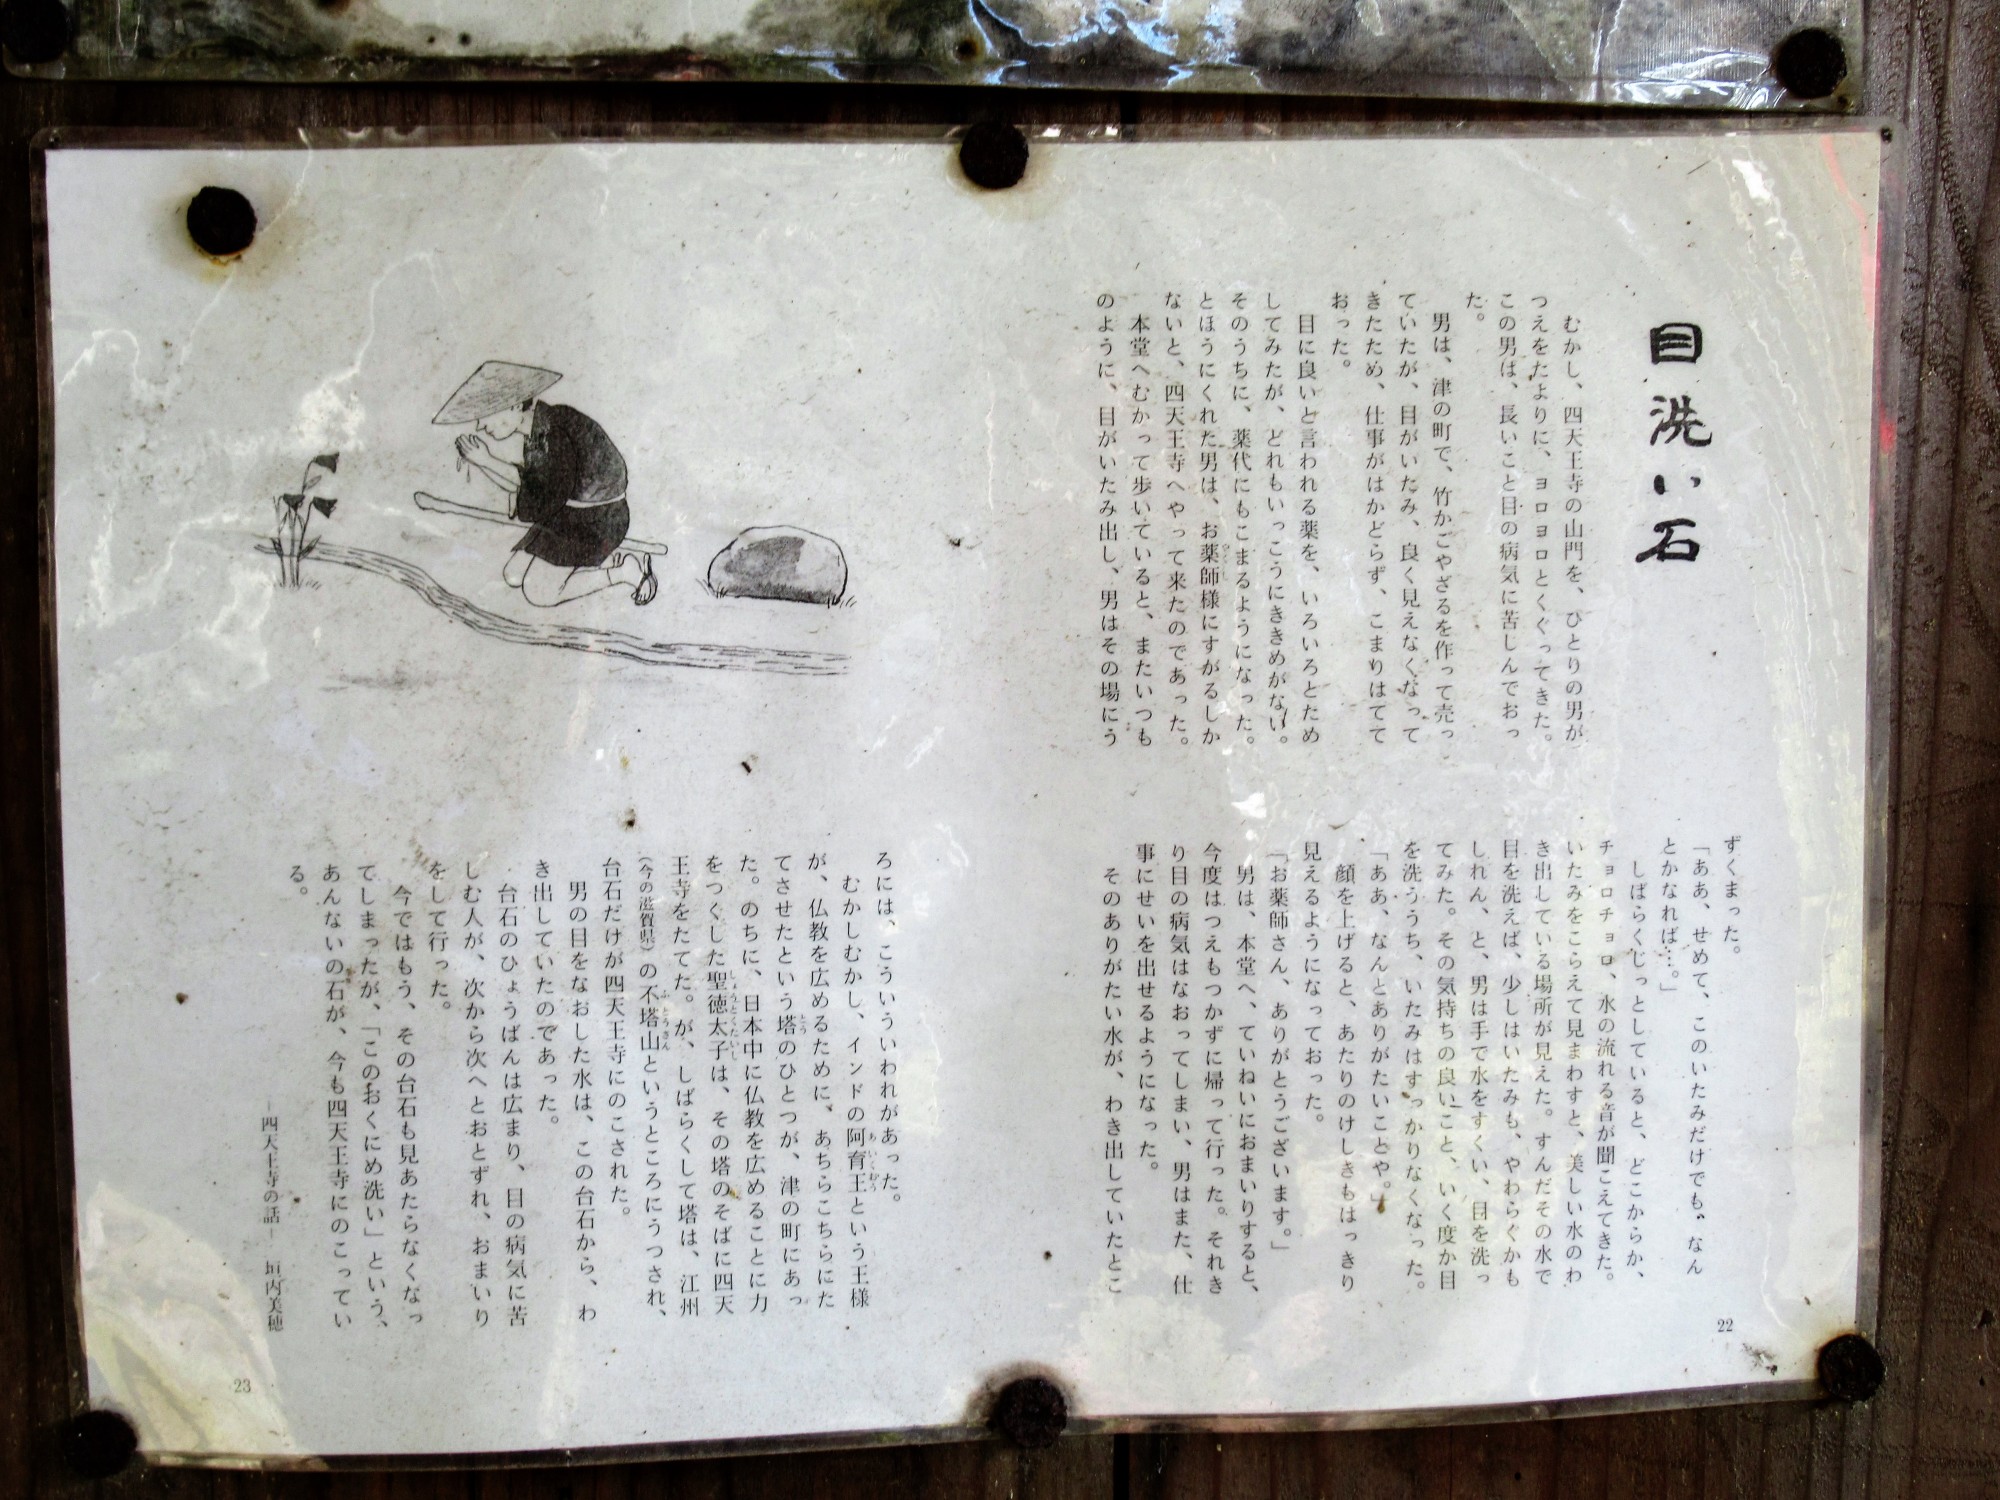 目洗い石
むかし、四天王寺の山門を、ひとりの男が
つえをたよりに、ヨロヨロとくぐってきた。
この男は、長いこと目の病気に苦しんでおっ
た。
男は、津の町で、竹かごやざるを作って売っ
ていたが、目がいたみ、良く見えなくなって
きたため、仕事がはかどらず、こまりはてて
おった。
目に良いと言われる薬を、いろいろとため
してみたが、どれもいっこうにききめがない。
そのうちに、薬代にもこまるようになった。
とほうにくれた男は、お薬師様にすがるしか
ないと、四天王寺へやって来たのであった。
本堂へむかって歩いていると、またいつも
のように、目がいたみ出し、男はその場にう
ずくまった。
「ああ、せめて、このいたみだけでも、なん
とかなれば…。」
しばらくじっとしていると、どこからか、
チョロチョロ、水の流れる音が聞こえてきた。
いたみをこらえて見まわすと、美しい水のわ
き出している場所が見えた。すんだその水で
目を洗えば、少しはいたみも、やわらぐかも
しれん、と、男は手で水をすくい、目を洗っ
てみた。その気持ちの良いこと、いく度か目
を洗ううち、いたみはすっかりなくなった。
「ああ、なんとありがたいことや。」
顔を上げると、あたりのけしきもはっきり
見えるようになっておった。
「お薬師さん、ありがとうございます。」
男は、本堂へ、ていねいにおまいりすると、
今度はつえもつかずに帰って行った。それき
り目の病気はなおってしまい、男はまた、仕
事にせいを出せるようになった。
そのありがたい水が、わき出していたとこ
22
ろには、こういういわれがあった。
むかしむかし、インドの阿育王という王様
が、仏教を広めるために、あちらこちらにた
てさせたという塔のひとつが、津の町にあっ
た。のちに、日本中に仏教を広めることに力
をつくした聖徳太子は、その塔のそばに四天
王寺をたてた。が、しばらくして塔は、江州
（今の滋賀県）の不塔山というところにうつされ、
台石だけが四天王寺にのこされた。
男の目をなおした水は、この台石から、わ
き出していたのであった。
台石のひょうばんは広まり、目の病気に苦
しむ人が、次から次へとおとずれ、おまいり
をして行った。
今ではもう、その台石も見あたらなくなっ
てしまったが、「このおくにめ洗い」という、
あんないの石が、今も四天王寺にのこってい
る。
－四天王寺の話－　垣内美穂
23